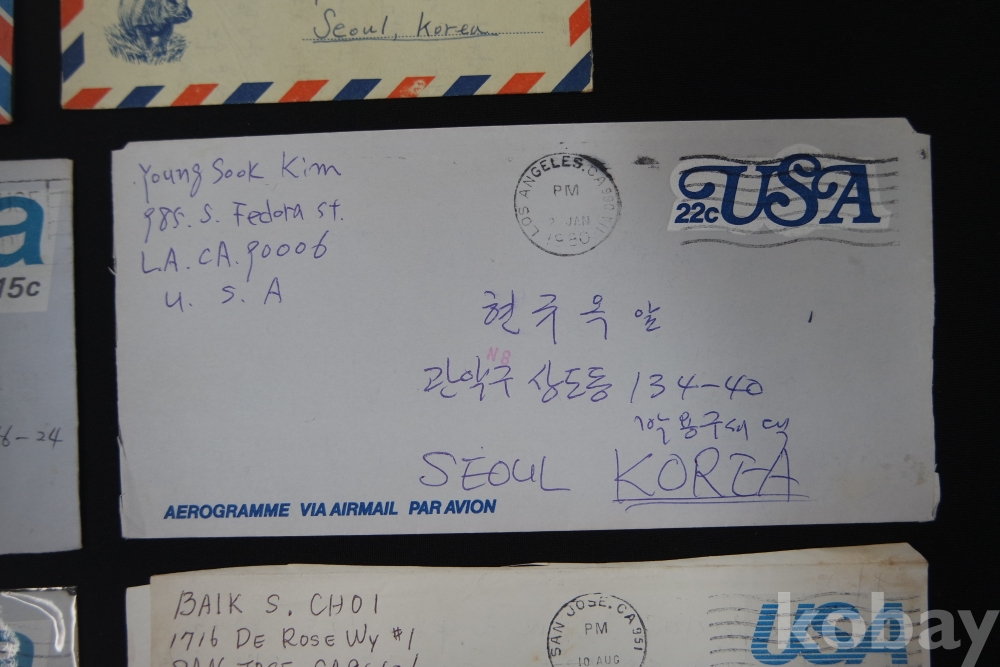 Seoul, Korea
a
15c
6-24
Young Sook Kim
985. S. Fedora St.
L.A. CA. 90006
U. S. A
LOS ANGELES, CA
PM
JAN
1980
22c USA
현구옥 앞
N8
관악구 상도동 134-40
박용구씨 댁
SEOUL KOREA
AEROGRAMME VIA AIRMAIL PAR AVION
BAIK S. CHOI
1716 DE ROSE WY #1
SAN JOSE, CA 951
PM
10 AUG
USA
kobay